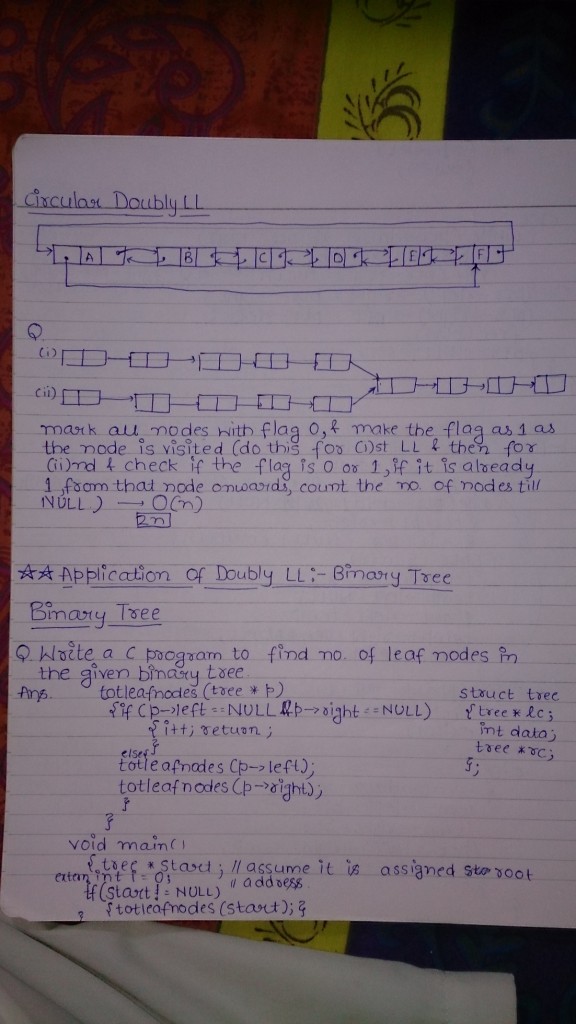 Circular Doubly LL
A B C D E F
Q
(i)
(ii)
mark all nodes with flag 0, & make the flag as 1 as
the node is visited (do this for (i)st LL & then for
(ii)nd & check if the flag is 0 or 1, if it is already
1, from that node onwards, count the no. of nodes till
NULL ) → O(n)
2n
☆☆ Application of Doubly LL :- Binary Tree
Binary Tree
Q. Write a C program to find no. of leaf nodes in
the given binary tree.
Ans. totleafnodes (tree * p) struct tree
{ if (p->left == NULL && p->right == NULL) { tree * lc;
{ i++; return ; int data;
} tree * rc;
else { };
totleafnodes (p->left);
totleafnodes (p->right);
}
}
void main()
{ tree * start ; // assume it is assigned root
extern int i = 0; // address
if (start != NULL)
{ totleafnodes (start); }
}